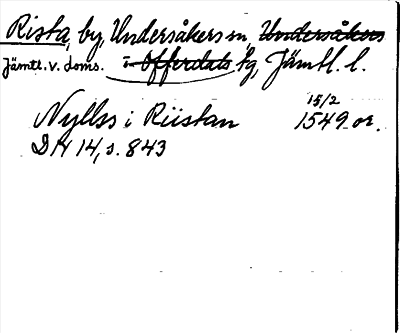 Rista, by, Undersåkers sn Undersåkers
Jämtl. v. doms. i Offerdals tg, Jämtl. l.
15/2
Nyllss i Riistan 1549 or.
DN 14, s. 843